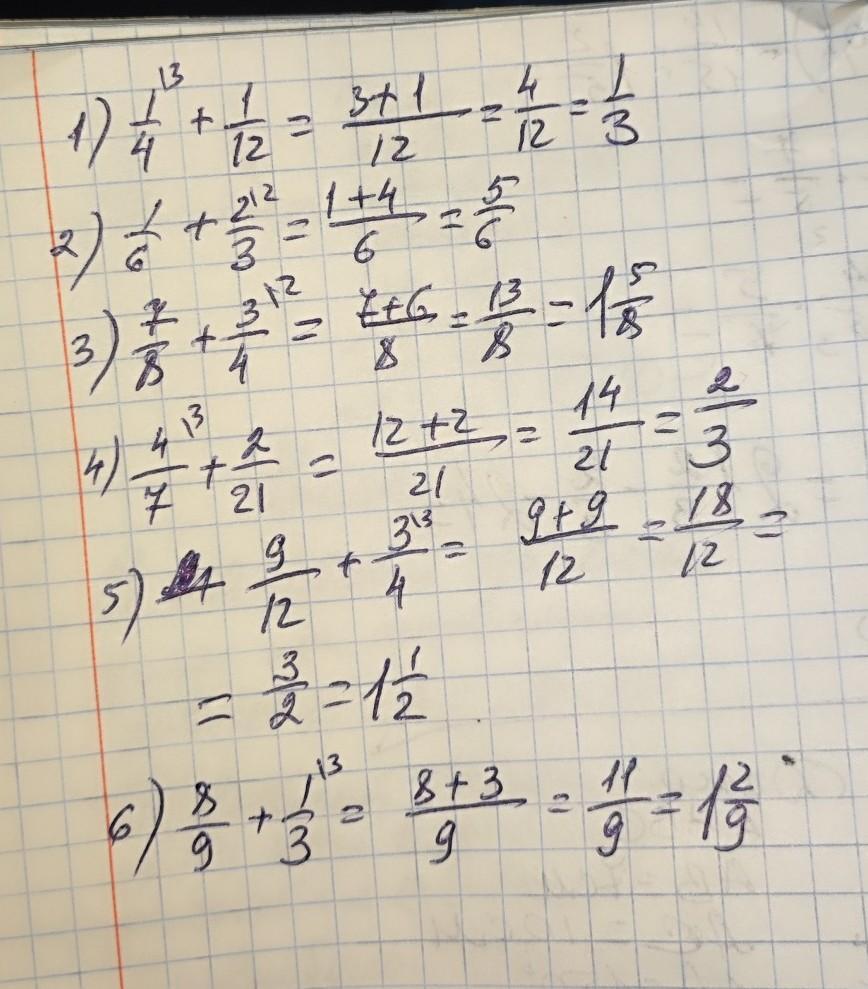 1) 1/4 \3 + 1/12 = (3+1)/12 = 4/12 = 1/3
2) 1/6 + 2/3 \2 = (1+4)/6 = 5/6
3) 7/8 + 3/4 \2 = (7+6)/8 = 13/8 = 1 5/8
4) 4/7 \3 + 2/21 = (12+2)/21 = 14/21 = 2/3
5) 9/12 + 3/4 \3 = (9+9)/12 = 18/12 =
= 3/2 = 1 1/2
6) 8/9 + 1/3 \3 = (8+3)/9 = 11/9 = 1 2/9